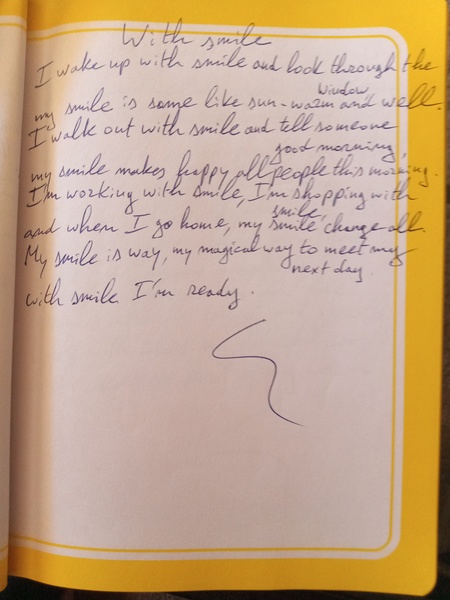 With smile
I wake up with smile and look through the
window,
my smile is same like sun - warm and well.
I walk out with smile and tell someone
good morning,
my smile makes happy all people this morning.
I'm working with smile, I'm shopping with
smile,
and when I go home, my smile change all.
My smile is way, my magical way to meet my
next day.
with smile I'm ready.